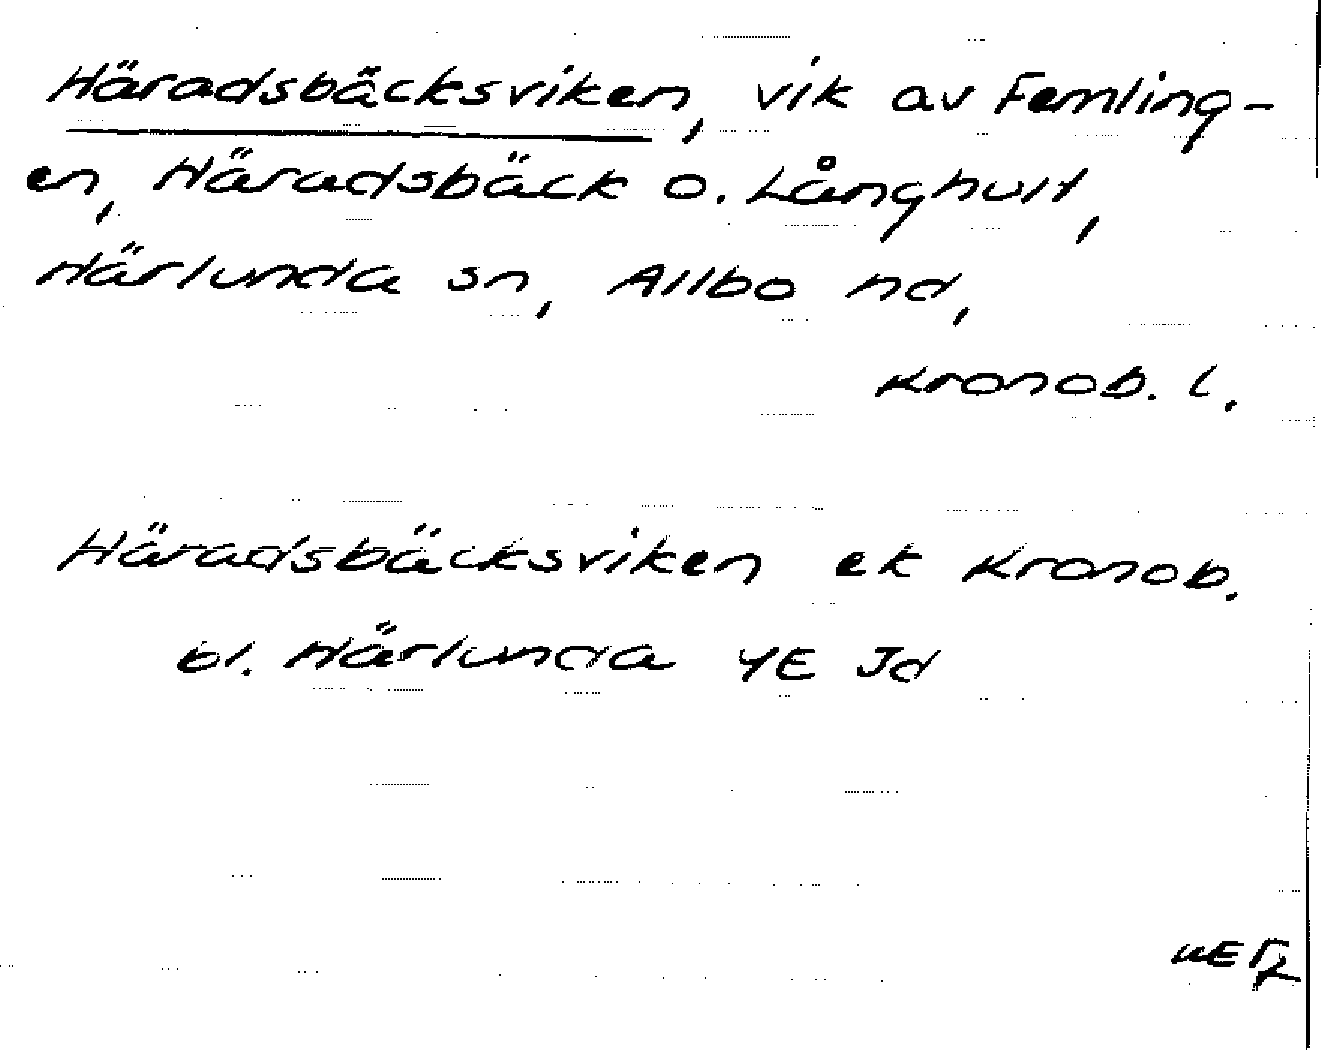 Häradsbäcksviken, vik av Femling-
en, Häradsbäck o. Långhult,
Härlunda sn, Allbo hd,
Kronob. l.
Häradsbäcksviken ek Kronob.
bl. Härlunda 4E Jd